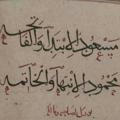 مسعود الابتدا والفاتحه
محمود الانتها والخاتمه